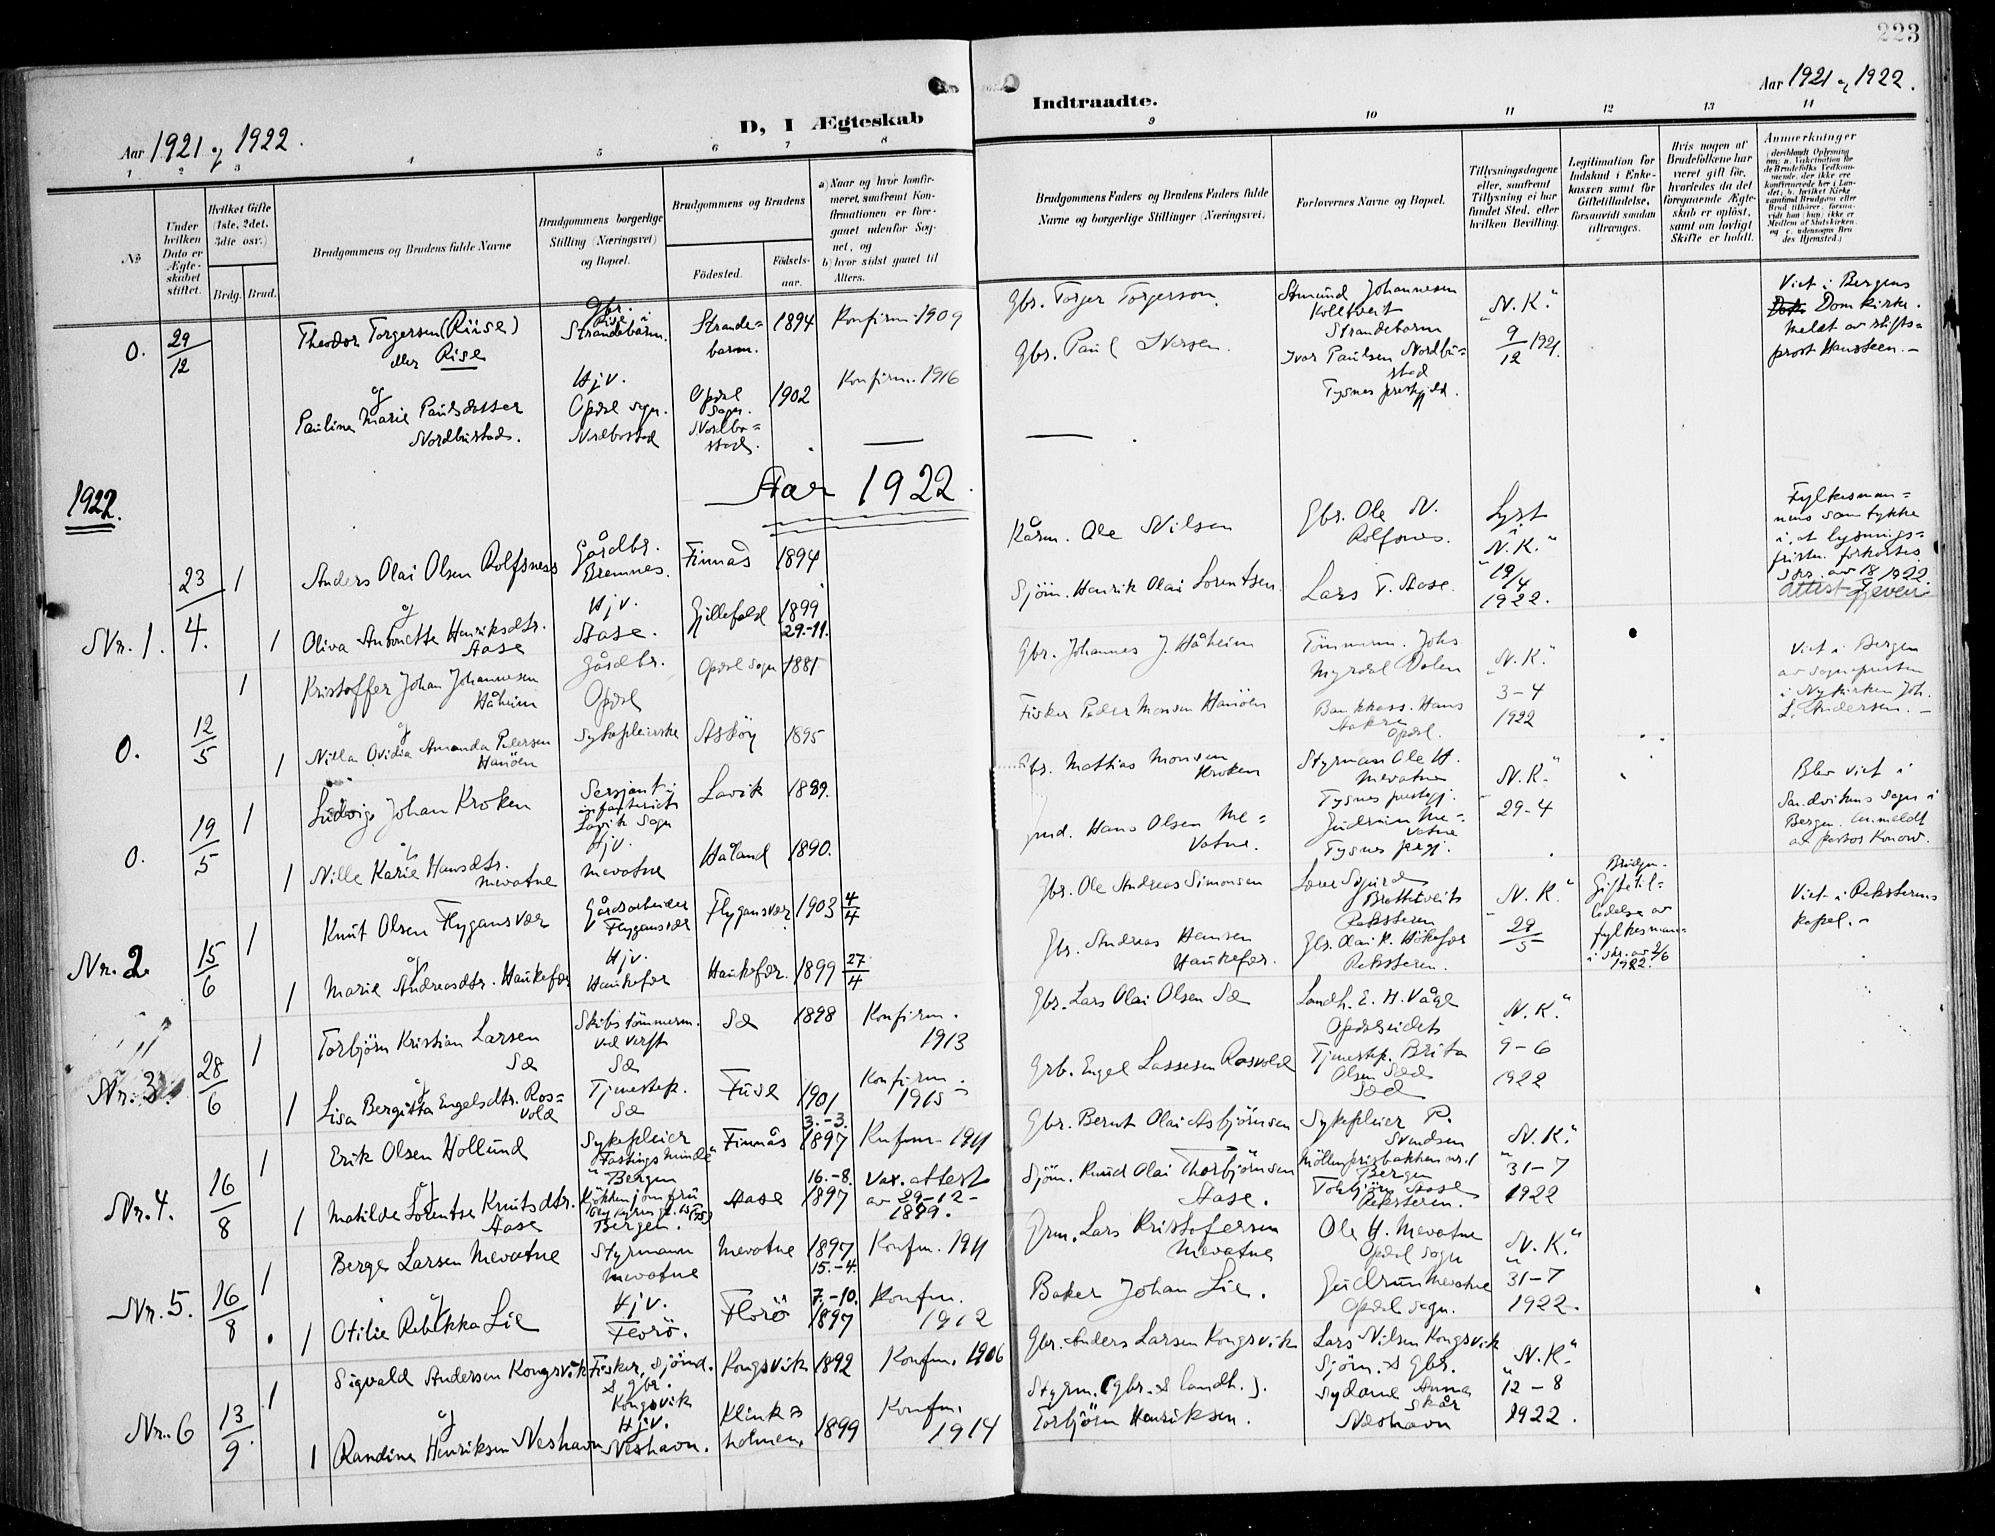 223
Aar 1921 og 1922.
D, I Ægteskab
Indtraadte.
Aar 1921 og 1922.
1 2 3 4 5 6 7 8
9 10 11 12 13 14
No
Under hvilken Dato er Ægteskabet stiftet.
Hvilket Gifte (1ste, 2det, 3die osv.)
Brdg. Brud.
Brudgommens og Brudens fulde Navne
Brudgommens borgerlige Stilling (Næringsvei) og Bopæl.
Brudgommens og Brudens
Födested.
Födsels-aar.
a) Naar og hvor konfirmeret, saafremt Konfirmationen er foregaaet udenfor Sognet, og
b) hvor sidst gaaet til Alters.
Brudgommens Faders og Brudens Faders fulde Navne og borgerlige Stillinger (Næringsvei)
Forlovernes Navne og Bopæl.
Tillysningsdagene eller, saafremt Tillysning ei har fundet Sted, efter hvilken Bevilling.
Legitimation for Indskud i Enkekassen samt for Giftetilladelse, forsaavidt saadan tiltrænges.
Hvis nogen af Brudefolkene har været gift för, hvorledes da det foregaaende Ægteskab er oplöst, samt om lovligt Skifte er holdt.
Anmerkninger
O. 29/12
Theodor Torgersen (Riise) eller Rise
Gbr. Rise i Strandebarm.
Strandebarm.
1894
Konfirm. 1909
Gbr. Torger Torgerson.
Johannesen
Strandebarm
"N. K."
9/12 1921.
Viet i Bergens Domkirke. Meldt av stiftsprost Hansteen.
og
Pauline Marie Paulsdatter Nordbustad.
Hjv.
Opdal sogn. Nordbostad
Opdal Sogn. Nordbostad.
1902
Konfirm. 1916
Gbr. Paul Iversen.
Ivar Paulsen Nordbustad
Tysnes prestgjeld.
1922.
Aar 1922.
Nr. 1. 23/4. 1
Anders Olai Olsen Rolfsnes
Gårdbr. Bremnes.
Finnås
1894
Kårm. Ole Nilsen
Gbr. Ole N. Rolfsnes.
Lyst i "N. K." 19/4 1922.
Fylkesmannens samtykke i, at lysningsfristen forkortes
1922.
Attest given
og
1 Oliva Antonette Henriksdtr. Aase
Hjv. Aase.
1899 29.-11.
Sjöm. Henrik Olai Lorentsen.
Lars T. Aase.
O. 12/5 1
Kristoffer Johan Johannesen Håheim
Gårdbr. Opdal
Opdal Sogn
1881
Gbr. Johannes J. Håheim
Tömmerm. Johs Myrdal Dalen
"N. K." 3-4 1922
Viet i Bergen av sognepresten i Nykirken Joh. L. Andersen. -
og
1 Nilla Ovidia Amanda Pedersen Hanöen
Sykepleierske
Asköy
1895
Fisker Peder Monsen Hanöen
Hans
Opdal.
O. 19/5 1
Ludvig Johan Kroken
Sersjant i infanteriet Lavik Sogn
Lavik
1889.
Gbr. Mathias Monsen Kroken
Styrmann Ole H. Mevatne
Tysnes prestgj.
"N. K." 29-4
Blev viet i Sandvikens Sogn i Bergen. Anmeldt av pastor Konow.
og
1 Nille Karie Hansdtr. Mevatne
Hjv. Mevatne
Håland
1890.
Hans Olsen Mevatne.
Gudrun Mevatne
Tysnes prgj.
Nr. 2. 15/6 1
Knut Olsen Flygansvær
Gårdsarbeider Flygansvær
Flygansvær
1903 4/4
Gbr. Ole Andreas Simonsen
Lærer Sigurd Brattetveits Reksteren
"N. K." 28/5
Brudgm. Giftetilladelse av fylkesman i skr. av 2/6 1922.
Viet i Reksterens kapel. -
og
1 Marie Andreasdtr. Haukefær
Hjv. Haukefær
Haukefær.
1899 27/4
Gbr. Andreas Hansen Haukefær.
Gbr. Olai K. Hökefær Reksteren.
Nr. 3. 28/6 1
Torbjörn Kristian Larsen Sæ
Skibstömmerm. ved verft Sæ
Sæ
1898
Konfirm. 1913
Gbr. Lars Olai Olsen Sæ
Landh. E. H. Våge Opdalseidet
"N. K." 9-6 1922
og
1 Lisa Bergitta Engelsdtr. Rosvold
Tjenestep. Sæ
Fusa
1901
Konfirm. 1915
Grb. Engel Lassesen Rosvold
Tjenestep. Brita Olsen Sæd Sæd
Nr. 4. 16/8 1
Erik Olsen Hollund
Sykepleier "Fastings Minde" Bergen
Finnås
3.-3. 1897
Knfrm. 1911
Gbr. Bernt Olai Asbjörnsen
Sykepleier P. Svendsen Möllenprisbakken nr. 1 Bergen
"N. K." 31-7 1922
og
1 Matilde Lorentse Knutsdtr. Aase
Kökkenjomfru
Bergen.
Aase
16.-8. 1897
Vax. attest av 29-12-1899.
Sjöm. Knud Olai Thorbjörnsen Aase.
Torbjörn Aase Reksteren.
Nr. 5. 16/8 1
Berge Larsen Mevatne
Styrmann Mevatne
Mevatne
1897 15.-4.
Konfm. 1911
Grm. Lars Kristofersen Mevatne
Ole H. Mevatne Opdal Sogn
"N. K." 31-7 1922.
og
1 Otilie Rebekka Lie
Hjv. Florö.
Florö
7.-10. 1897
Konfm. 1912
Baker Johan Lie.
Gudrun Mevatne Opdal sogn.
Nr. 6 13/9. 1
Sigvald Andersen Kongsvik
Fisker, Sjömd. & gbr. Kongsvik
Kongsvik
1892
Konfm. 1906
Gbr. Anders Larsen Kongsvik
Lars Nilsen Kongsvik Sjöm. & Gbr.
"N. K." 12-8 1922.
og
1 Randine Henriksen Neshavn
Hjv. Neshavn.
Klinkesholmen
1899
Konfm. 1914
Styrm. (gbr. & landh.). Torbjörn Henriksen.
Sydame Anna Skår Neshavn